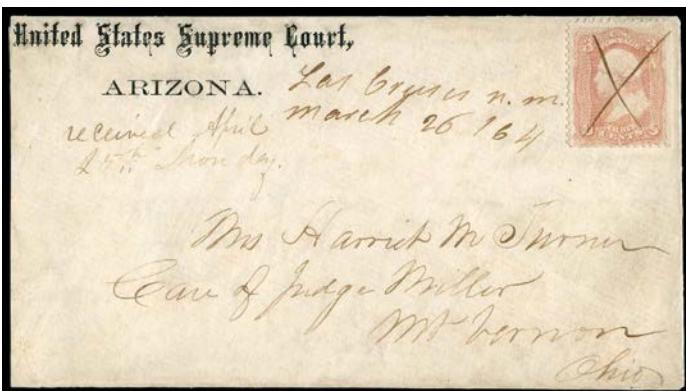 United States Supreme Court,
ARIZONA.
Las Cruces n. m.
March 26 / 64
received April
25th Monday.
3 3
THREE
CENTS
Mrs Harriet M Turner
Care of Judge Miller
Mt Vernon
Ohio